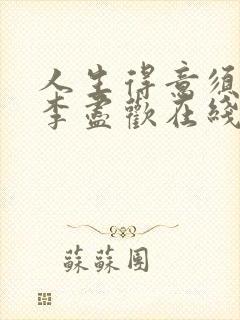 人生得意須
李盡歡在綫
蘇蘇團